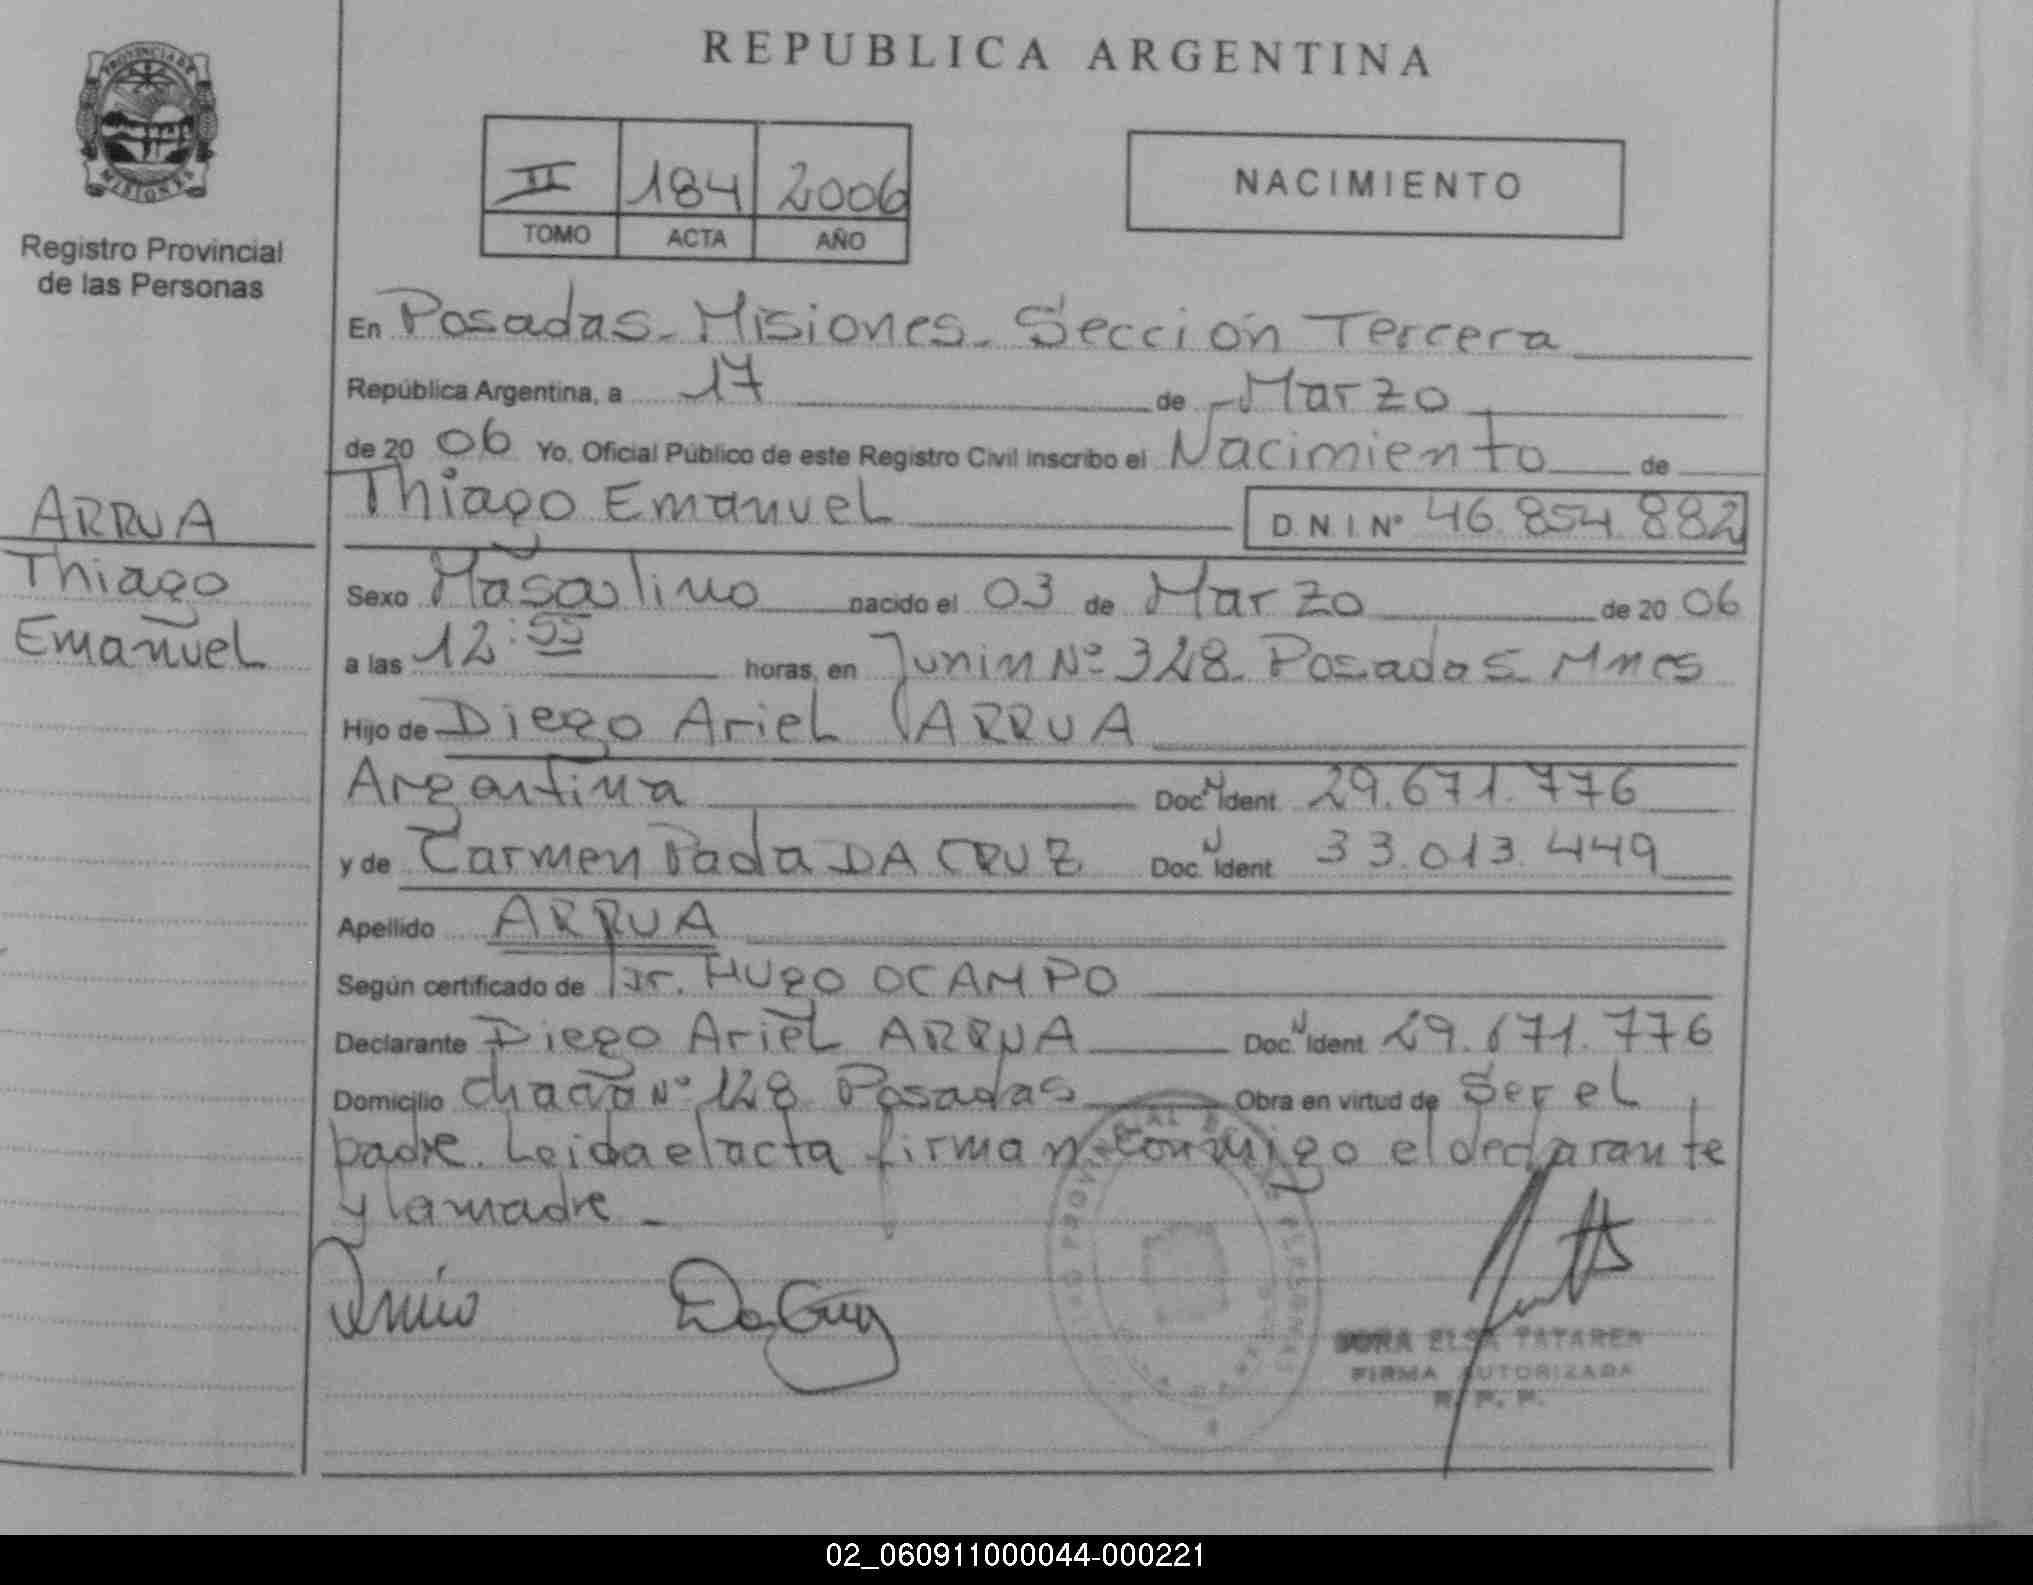 REPUBLICA ARGENTINA
PROVINCIA DE
MISIONES
Registro Provincial
de las Personas
II 184 2006
TOMO ACTA AÑO
NACIMIENTO
En Posadas - Misiones - Sección Tercera
República Argentina, a 17 de Marzo
de 20 06 Yo, Oficial Público de este Registro Civil inscribo el Nacimiento de
Thiago Emanuel D.N.I. Nº 46.854.882
ARRUA
Thiago
Emanuel
Sexo Masculino nacido el 03 de Marzo de 20 06
a las 12:55 horas, en Junin Nº 328 - Posadas - Mnes
Hijo de Diego Ariel ARRUA
Argentina Doc. N Ident. 29.671.776
y de Carmen DA CRUZ Doc. N Ident. 33.013.449
Apellido ARRUA
Según certificado de Dr. HUGO OCAMPO
Declarante Diego Ariel ARRUA Doc. N Ident. 29.671.776
Domicilio Nº 128 Posadas Obra en virtud de Ser el
padre. Leida el acta firman conmigo el declarante
y la madre -
Da Cruz
ELSA
FIRMA AUTORIZADA
R. P. P.
02_060911000044-000221